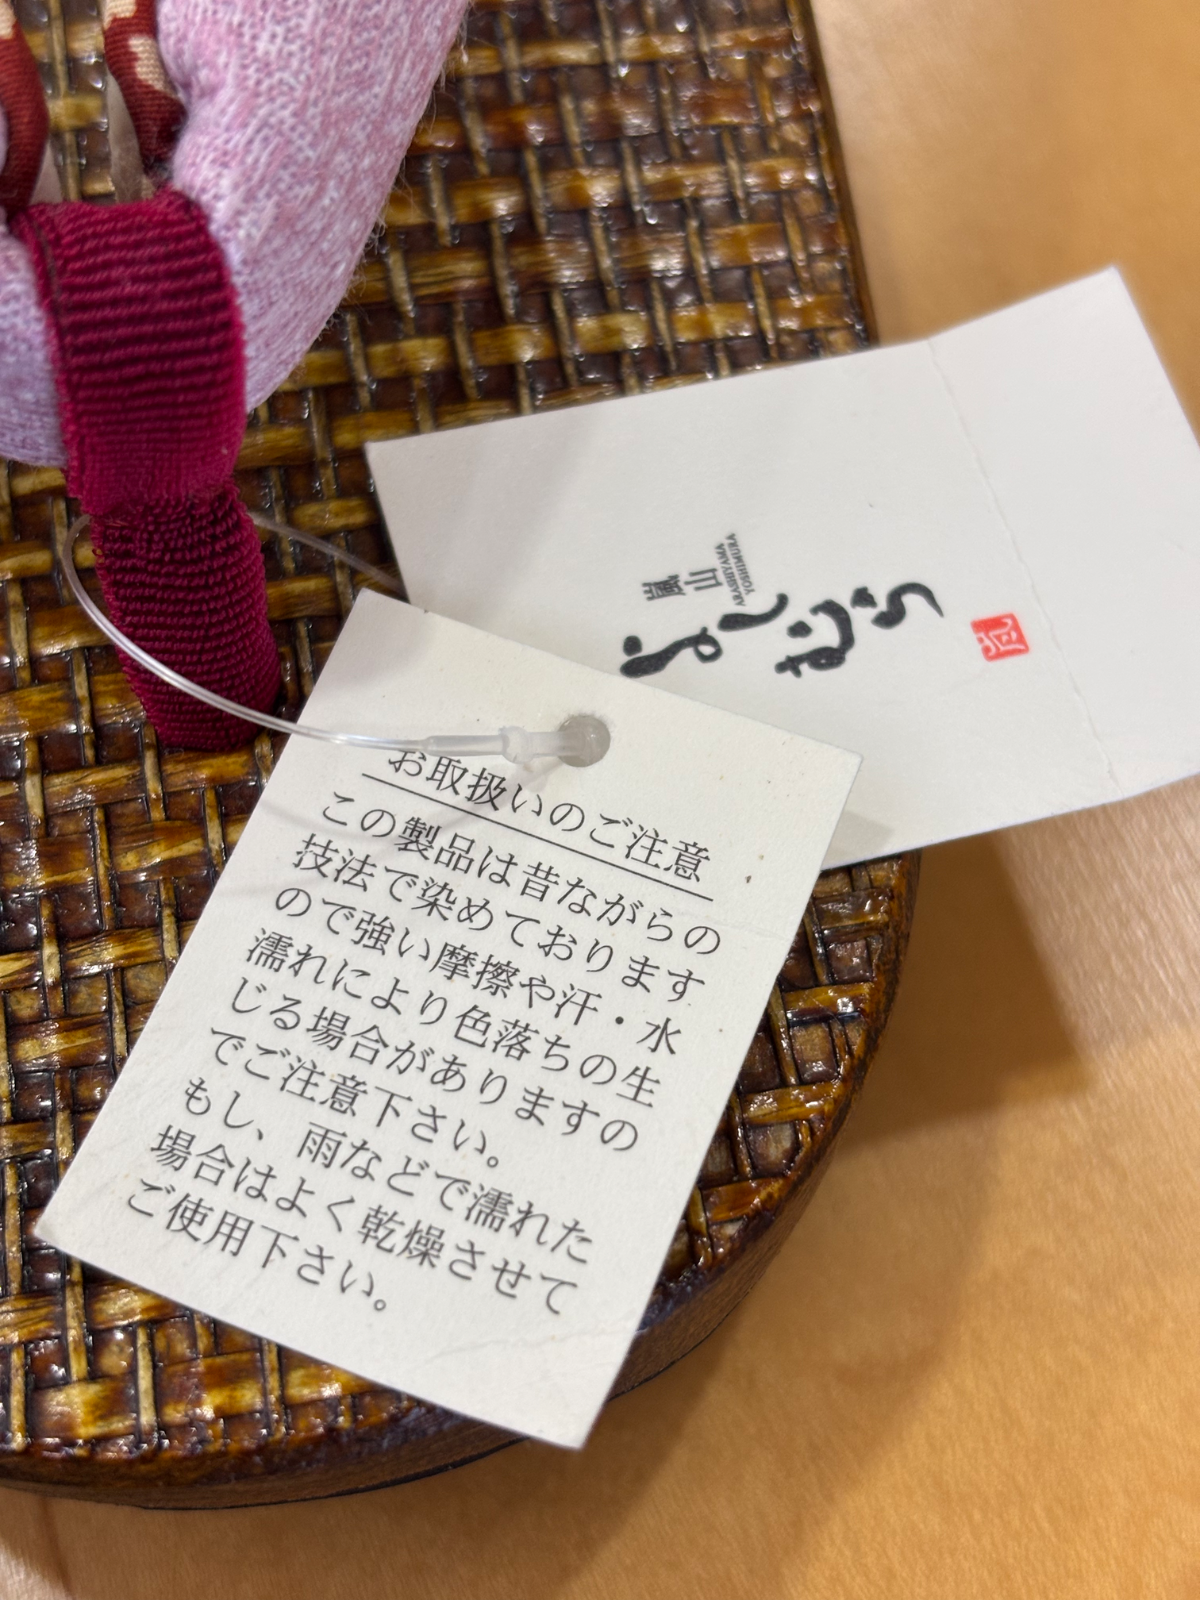 嵐山
ARASHIYAMA
YOSHIMURA
よしむら
嵐
お取扱いのご注意
この製品は昔ながらの
技法で染めております
ので強い摩擦や汗・水
濡れにより色落ちの生
じる場合がありますの
でご注意下さい。
もし、雨などで濡れた
場合はよく乾燥させて
ご使用下さい。